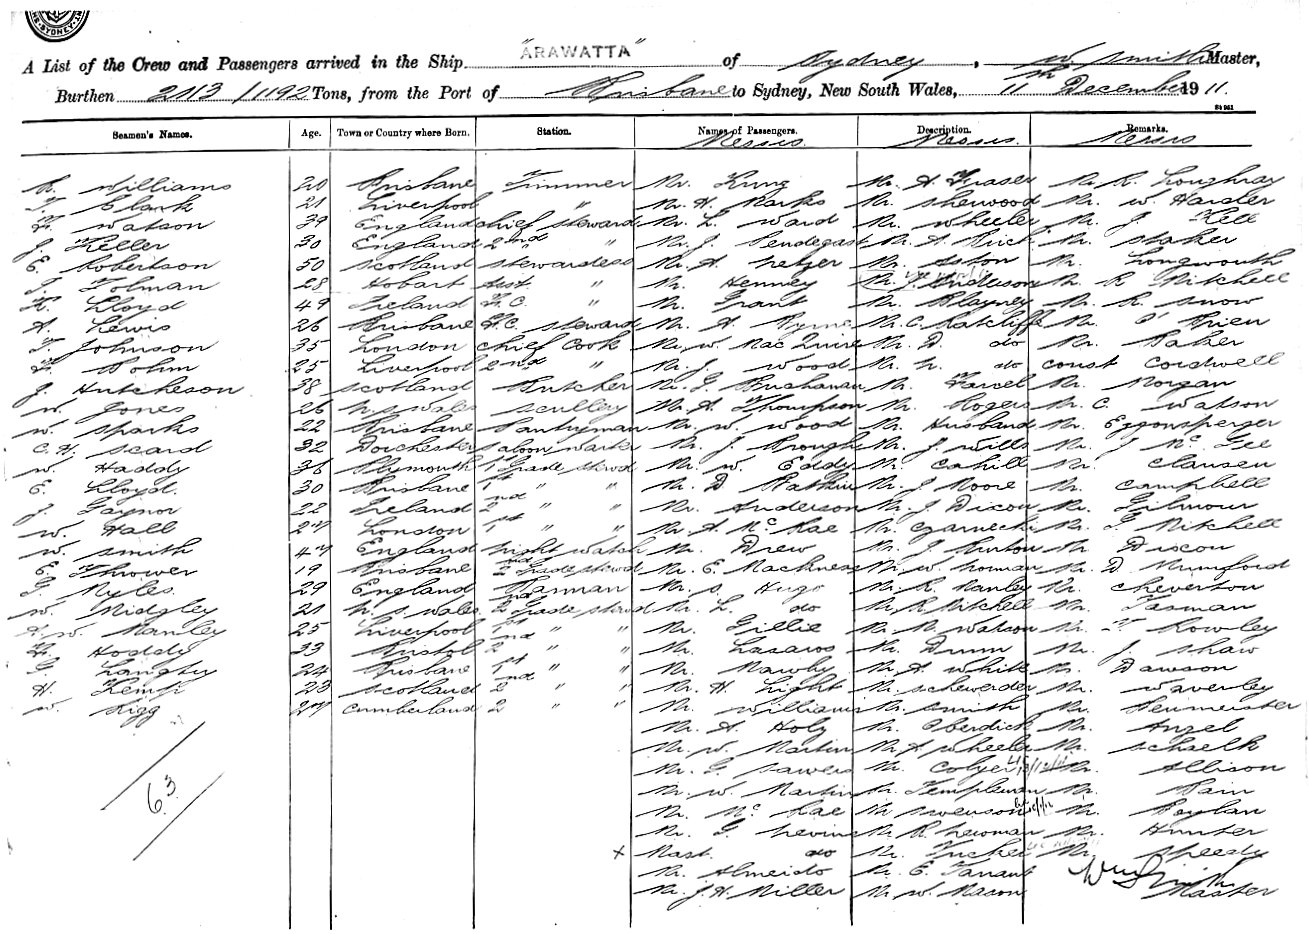 SYDNEY
A List of the Crew and Passengers arrived in the Ship "ARAWATTA" of Sydney, W. Smith Master,
Burthen 2113/1192 Tons, from the Port of Brisbane to Sydney, New South Wales, 11th December 1911.
Seamen's Names. Age. Town or Country where Born. Station. Names of Passengers. Description. Remarks.
Messrs. Messrs. Messrs
Williams 20 Brisbane Trimmer Mr. King Mr. A Fraser Mr. R. Loughray
Clark 21 Liverpool " Mr. H. Marks Mr. Sherwood Mr. W. Harder
Watson 39 England Chief Steward Mr. L. Ward Mr. Wheeley Mr. J. Kell
J. Keller 30 England 2nd " Mr. J. Pendegast Mr. A. Rick Mr. Staker
E. Robertson 50 Scotland Stewardess Mr. A. Mr. Aston Mr. Longworth
Tolman 28 Hobart Asst. " Mr. Henney Mr. J. Anderson Mr. R Mitchell
Lloyd 49 Ireland F.C. " Mr. Grant Mr. Blayney Mr. R. Snow
A. Lewis 26 Brisbane F.C. Steward Mr. A Mr. C. Ratcliffe Mr. O'Brien
Johnson 35 London Chief Cook Mr. W. MacQuire Mr. D. do Mr. Baker
25 Liverpool 2nd " Mr. J. Wood Mr. H. do Const Cordwell
J. Hutcheson 38 Scotland Butcher Mr. G. Buchanan Mr. Mr. Morgan
W. Jones 26 N.S. Wales Scullery Mr. A Thompson Mr. Rogers Mr. C. Watson
W. Sparks 22 Brisbane Pantryman Mr. W. Wood Mr. Husband Mr. Eggonsperger
C. H. Scard 32 Dorchester Saloon Waiter Mr. J. Brough Mr. J. Wills Mr. J McGee
W. Haddy 36 Plymouth 1st Grade Stwd Mr. W. Eddy Mr. Cahill Mr. Clausen
E. Lloyd. 30 Brisbane 1st " " Mr. D Rankin Mr. J Moore Mr. Campbell
J. Gaynor 22 Ireland 2nd " " Mr. Anderson Mr. J Dixon Mr. Gilmour
W. Hall 27 London 1st " " Mr. A. McRae Mr. Czarnecki Mr. G Mitchell
W. Smith 47 England Night Watch Mr. Drew Mr. J. Burton Mr. Dixon
E. Thower 19 Brisbane 2nd Grade Stwd Mr. E. Mackness Mr. W. Norman Mr. D Mumford
G. Myles. 29 England Barman Mr. S. Hugo Mr. R. Manley Mr. Cheverton
W. Midgley 21 N.S. Wales 2nd Grade Stwd Mr. L. do Mr. R Mitchell Mr. Tasman
A. W. Manley 25 Liverpool 1st " " Mr. Gillie Mr. R. Watson Mr. F. Rowley
Hoddy 33 Bristol 2nd " " Mr. Lazarus Mr. Dunn Mr. J. Shaw
G. Langtry 24 Brisbane 1st " " Mr. Mawby Mr. A White Mr. Dawson
H. Kemp 23 Scotland 2nd " " Mr. H. Light Mr. Schewerder Mr. Waverley
W. Rigg 27 Cumberland 2 " " Mr. Williams Mr. Smith Mr. Neumeister
Mr. A. Holy Mr. Oberdick Mr. Anzel
Mr. W. Martin Mr. A Wheeler Mr. Schaelk
Mr. G. Sawers Mr. Colyer Mr. Allison
63 Mr. W. Martin Mr. Templeman Mr. Bain
Mr. McRae Mr. Swenson Mr. Boylan
Mr. G. Nevins Mr. R. Newman Mr. Hunter
x Mast. do Mr. Tucker Mr. Speedy
Mr. Almeido Mr. E. Tarrant
Mr. J. H. Miller Mr. W. Mason
Wm Smith
Master